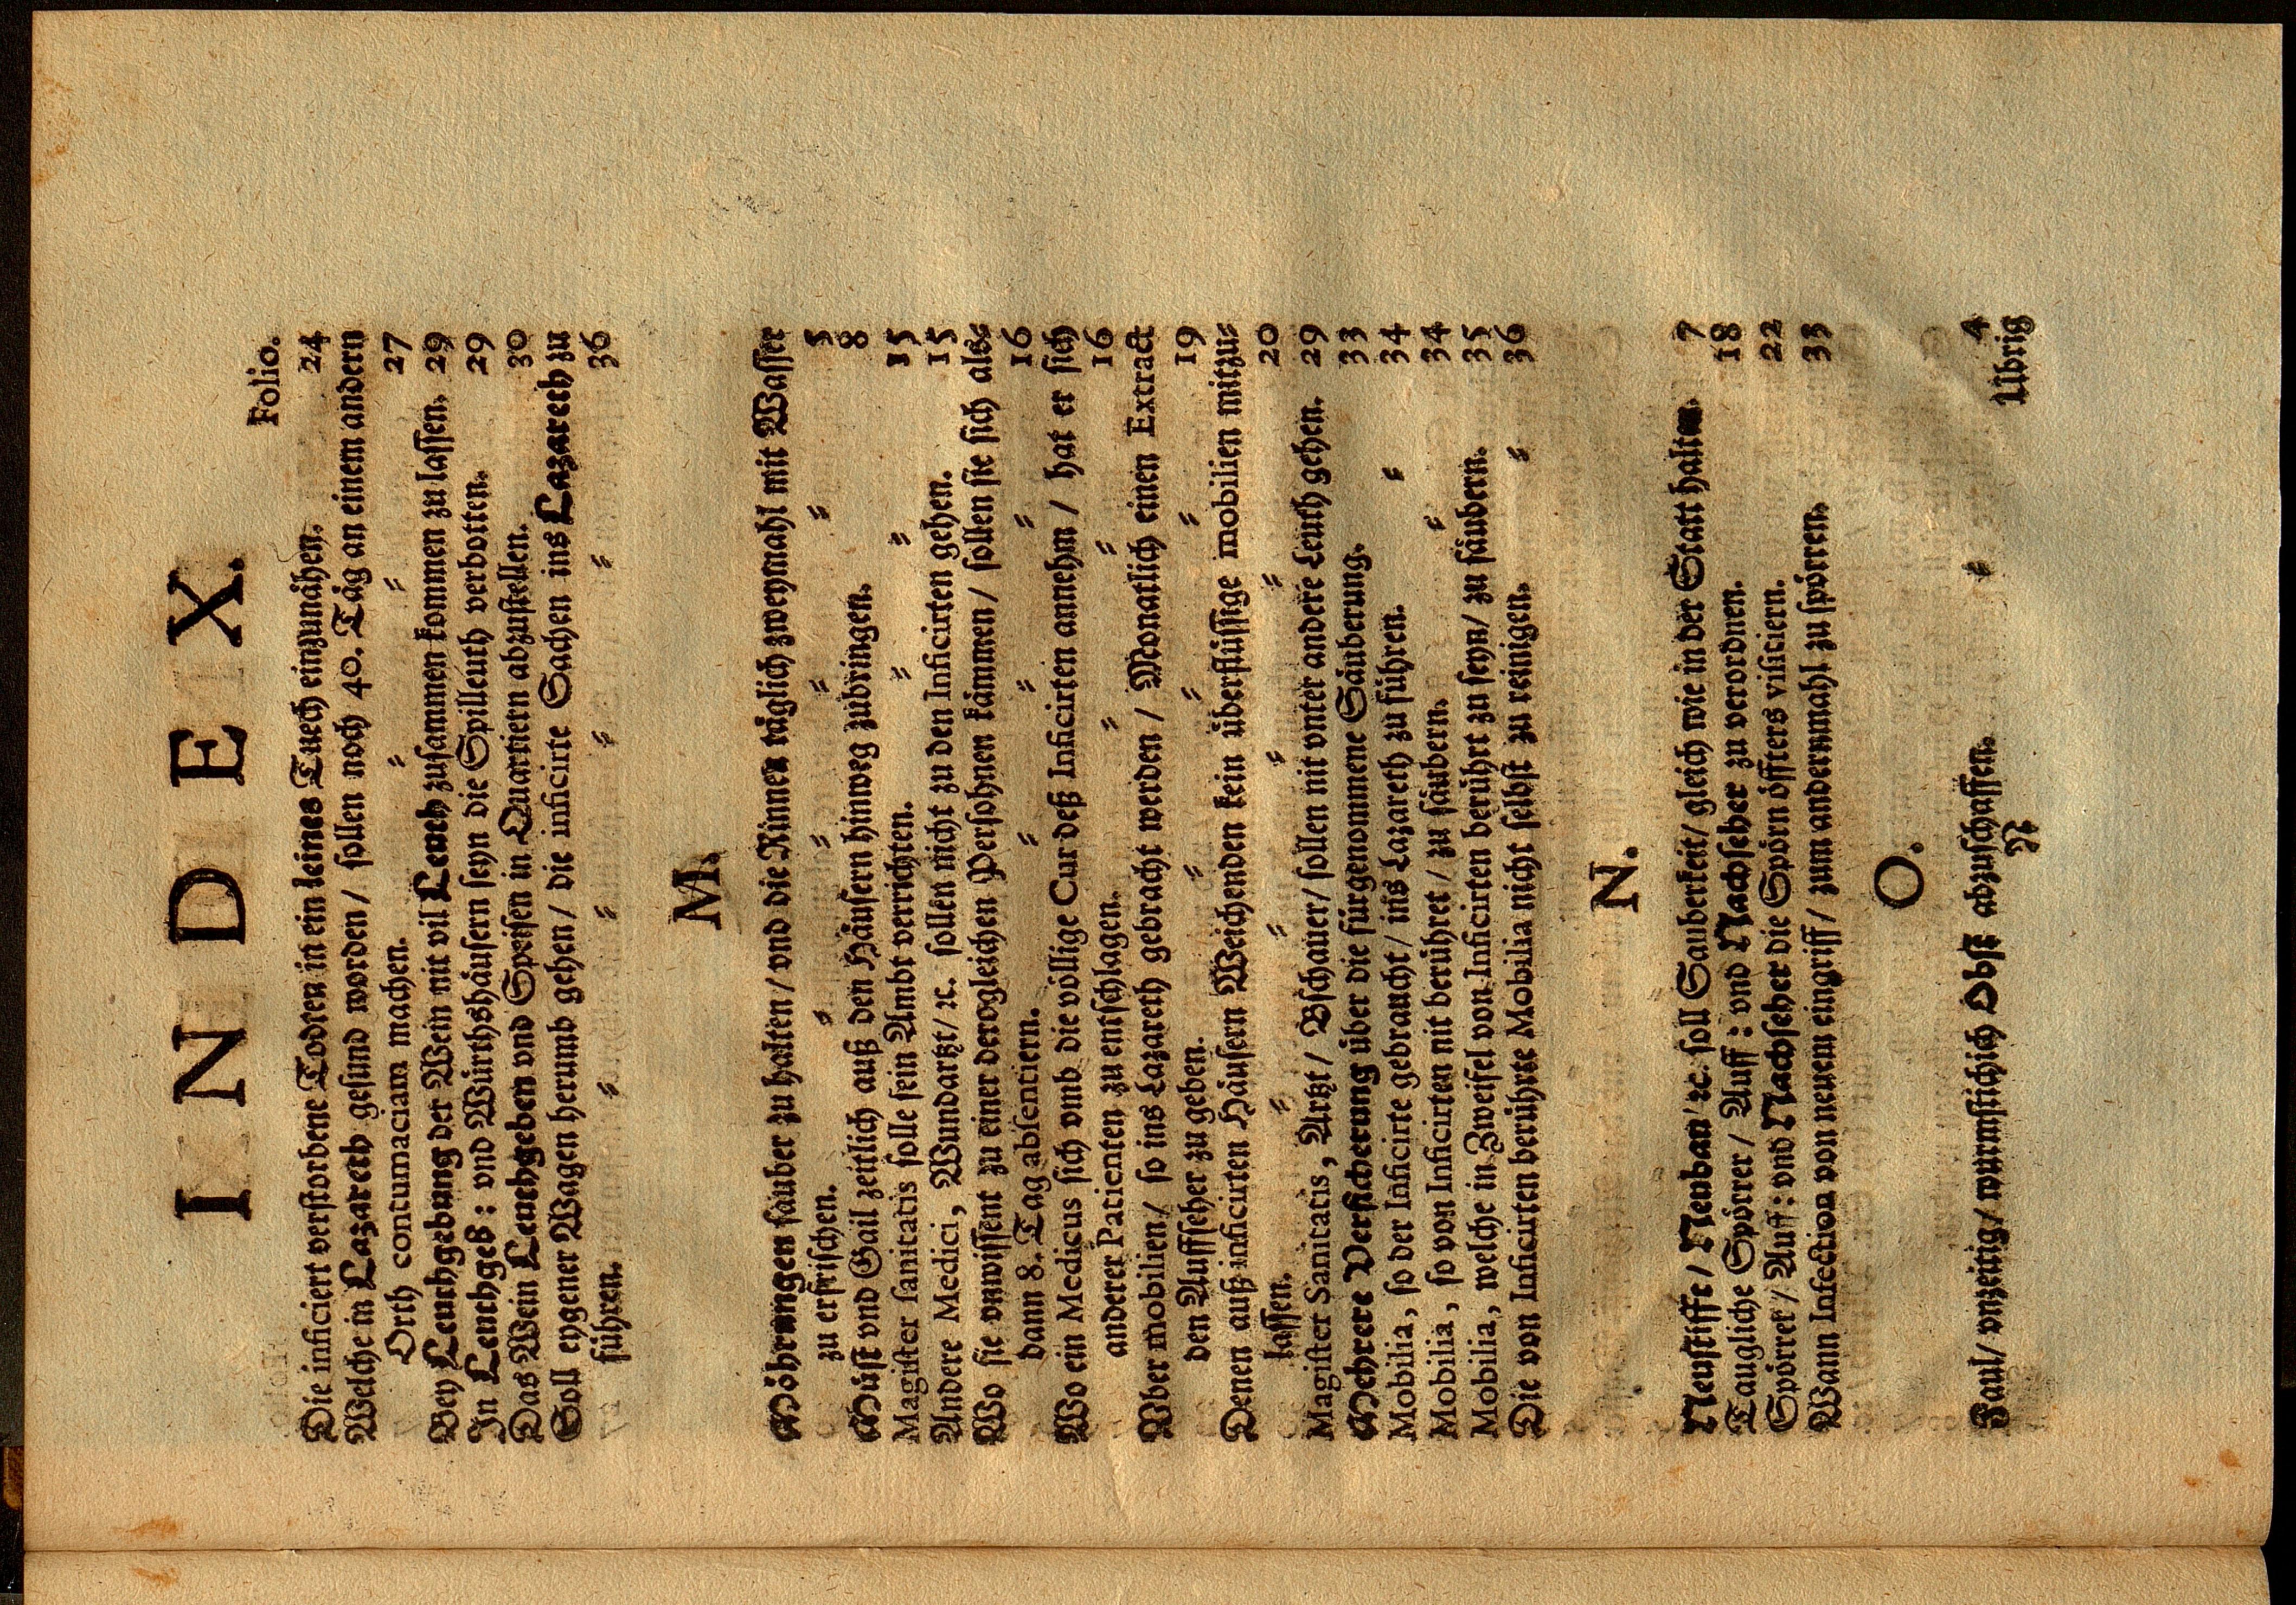 INDEX.
Folio.
Die inficiert verstorbene Todten in ein leines Tuech einzunähen. 24
Welche in Lazareth gesund worden / sollen noch 40. Täg an einem andern
Orth contumaciam machen. = = 27
Bey Leuthgebung der Wein nit vil Leuth zusammen kommen zu lassen. 29
In Leuthgeß: vnd Würthshäusern seyn die Spilleuth verbotten. 29
Das Wein Leuthgeben vnd Speisen in Quartiern abzustellen. 30
Soll eygener Wagen herumb gehen / die inficirte Sachen ins Lazareth zu
führen. = = = = 36
M.
Möhrungen sauber zu halten / vnd die Rinnen täglich zweymahl mit Wasser
zu erfrischen. = = = = 5
Müst vnd Gail zeitlich auß den Häusern hinweg zubringen. 8
Magister sanitatis solle sein Ambt verrichten. = = 15
Andere Medici, Wundartzt / ꝛc. sollen nicht zu den Inficirten gehen. 15
Wo sie vnwissent zu einer dergleichen Persohnen kämmen / sollen sie sich als=
dann 8. Tag absentiern. = = = 16
Wo ein Medicus sich vmb die völlige Cur deß Inficirten annehm / hat er sich
anderer Patienten zu entschlagen. = = 16
Vber mobilien / so ins Lazareth gebracht werden / Monatlich einen Extract
den Auffseher zu geben. = = = 19
Denen auß inficirten Häusern Weichenden kein überflüssige mobilien mitzu=
lassen. = = = = 20
Magister Sanitatis, Artzt / Bschauer / sollen nit vnter andere Leuth gehen. 29
Mehrere Versicherung über die fürgenommene Säuberung. 33
Mobilia, so der Inficirte gebraucht / ins Lazareth zu führen. = 34
Mobilia, so von Inficirten nit berühret / zu säubern. = 34
Mobilia, welche in Zweifel von Inficirten berührt zu seyn / zu säubern. 35
Die von Inficirten berührte Mobilia nicht selbst zu reinigen. = 36
N.
Neustifft / Neuban / ꝛc. soll Sauberkeit / gleich wie in der Statt halten. 7
Taugliche Spörrer / Auff: vnd Nachseher zu verordnen. 18
Spörrer / Auff: vnd Nachseher die Spörn öffters visitiern. 22
Wann Infection von neuem eingriff / zum andernmahl zu spörren. 33
O.
Faul / vnzeitig / wurmstichich Obst abzuschaffen. = 4
N Ubrig